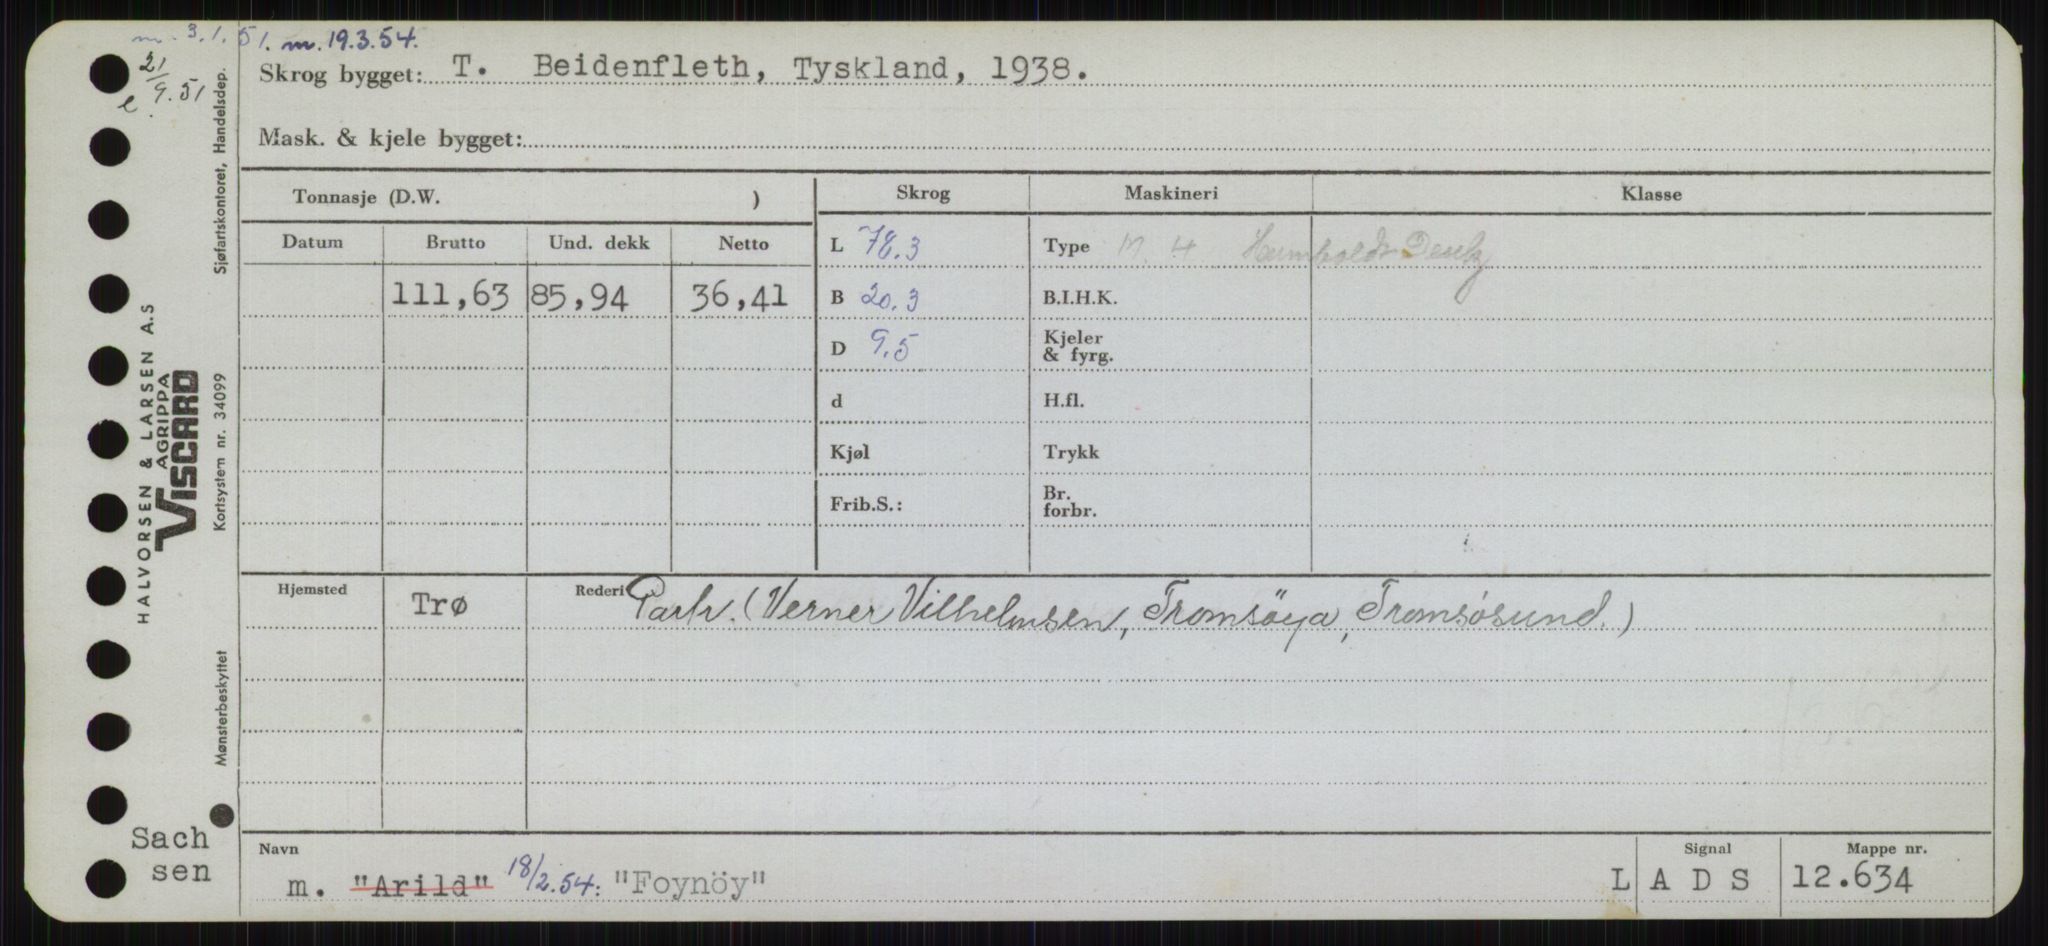 m. 3.1.51. m. 19.3.54.
21/9.51
e
Skrog bygget: T. Beidenfleth, Tyskland, 1938.
Mask. & kjele bygget:
HALVORSEN & LARSEN A.S
AGRIPPA
VISCARD
Mønsterbeskyttet Kortsystem nr. 34099 Sjøfartskontoret, Handelsdep.
Tonnasje (D.W. ) Skrog Maskineri Klasse
Datum Brutto Und. dekk Netto
L 78.3 Type M. 4 Humboldt Deutz
111,63 85,94 36,41
B 20.3 B.I.H.K.
D 9.5 Kjeler & fyrg.
d H.fl.
Kjøl Trykk
Frib.S.: Br. forbr.
Hjemsted Trø Rederi Partr. (Verner Vilhelmsen, Tromsöya, Tromsösund.)
Sach
sen
Navn Signal Mappe nr.
m. "Arild" 18/2.54: "Foynöy" L A D S 12.634